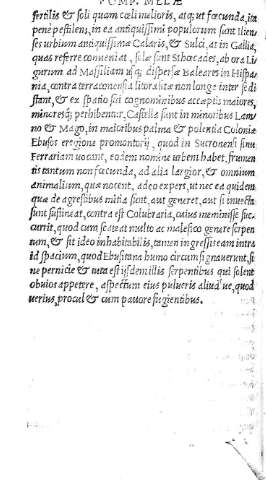 POMP. MELAE
fertilis & soli quam cœli melioris, atq; ut fœcunda, ita
pene pestilens, in ea antiquissimi populorum sunt Ilien-
ses urbium antiquissimæ Calaris, & Sulci, at in Gallia,
quas referre conueniat, solæ sunt Sthœcades, ab ora Li-
gurum ad Massiliam usq; dispersæ Baleares in Hispa-
nia, contra terraconensia litora sitæ non longe inter se di-
stant, & ex spatio sui cognominibus acceptis maiores,
minoresq; perhibentur, Castella sunt in minoribus Lam-
no & Mago, in maioribus palma & polentia Coloniæ
Ebusos e regione promontorij, quod in Sucronensi sinu
Ferrariam uocant, eodem nomine urbem habet, frumen
tis tantum non fœcunda, ad alia largior, & omnium
animalium, quæ nocent, adeo expers, ut nec ea quidem
quæ de agrestibus mitia sunt, aut generet, aut si inuecta
sunt sustineat, contra est Colubraria, cuius meminisse suc-
currit, quod cum scateat multo ac malefico genere serpen
tum, & sit ideo inhabitabilis, tamen ingressis eam intra
id spacium, quod Ebusitana humo circumsignauerunt, si
ne pernicie & tuta est ijsdem illis serpentibus qui solent
obuios appetere, aspectum eius pulueris aliud ue, quod
uerius, procul & cum pauore fugientibus.